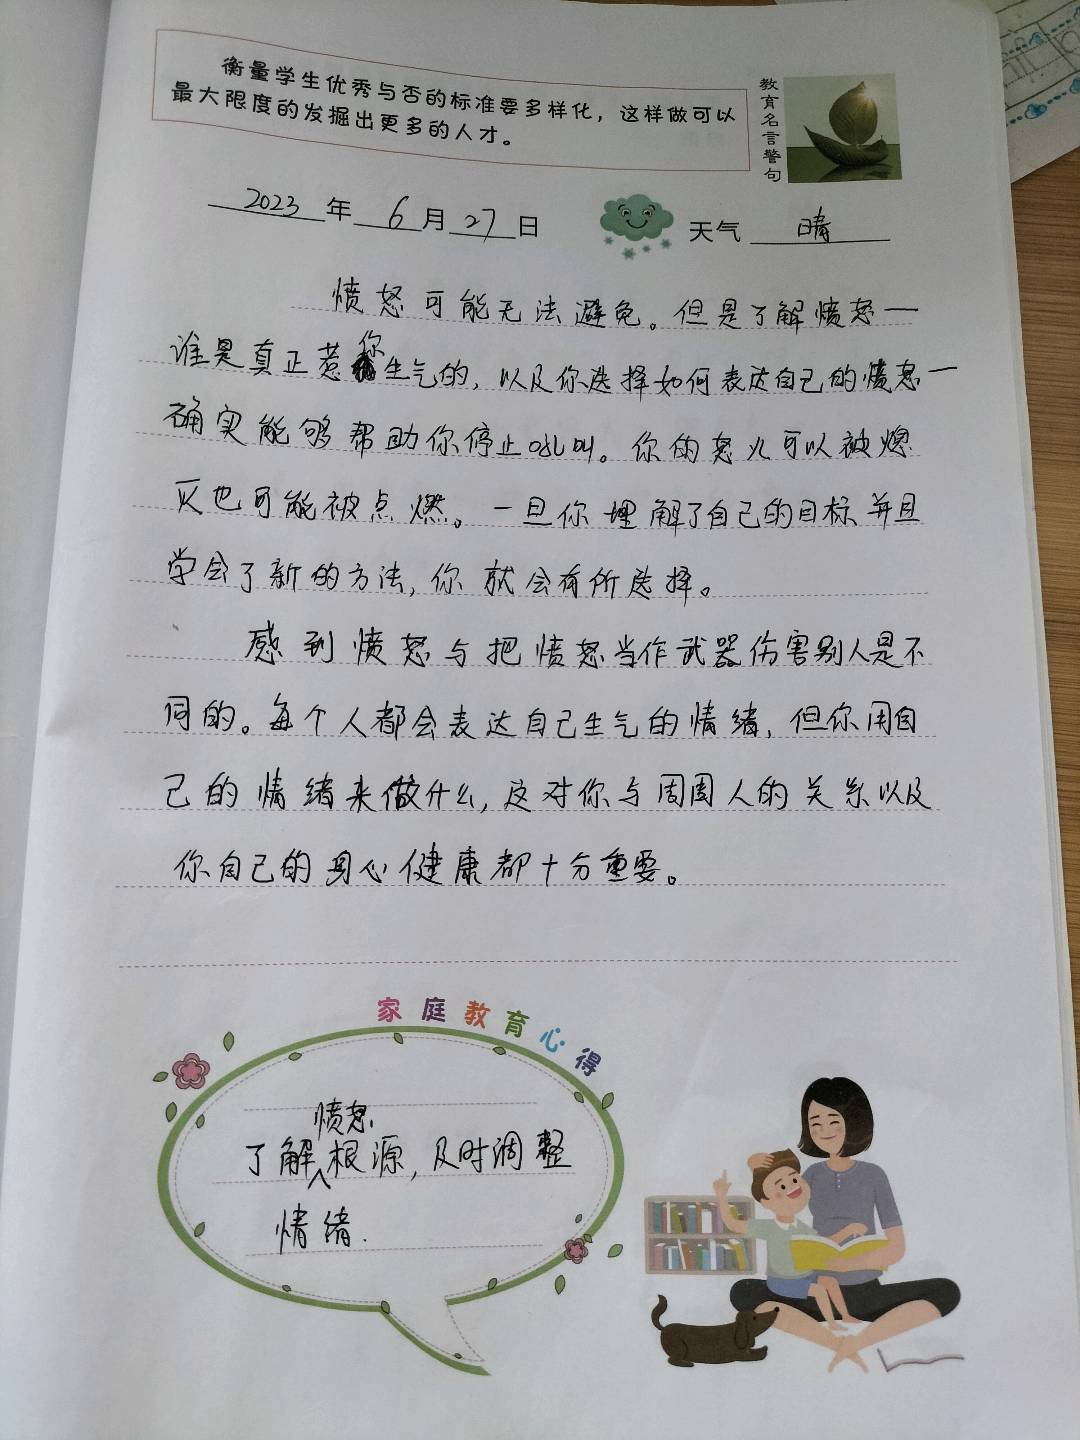 衡量学生优秀与否的标准要多样化，这样做可以
最大限度的发掘出更多的人才。
教育名言警句
2023年6月27日
天气 晴
愤怒可能无法避免。但是了解愤怒一
谁是真正惹你生气的，以及你选择如何表达自己的愤怒一
确实能够帮助你停止吼叫。你的怒火可以被熄
灭也可能被点燃。一旦你理解了自己的目标并且
学会了新的方法，你就会有所选择。
感到愤怒与把愤怒当作武器伤害别人是不
同的。每个人都会表达自己生气的情绪，但你用自
己的情绪来做什么，这对你与周围人的关系以及
你自己的身心健康都十分重要。
家庭教育心得
了解愤怒根源，及时调整
情绪.